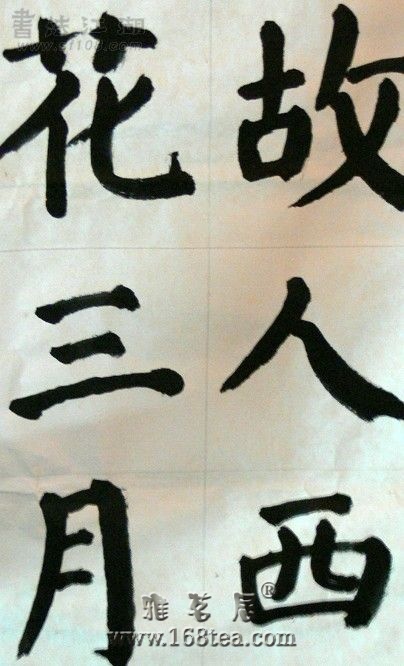 故人西
花三月
書法江湖
www.sf108.com
雅茗居®
www.168tea.com